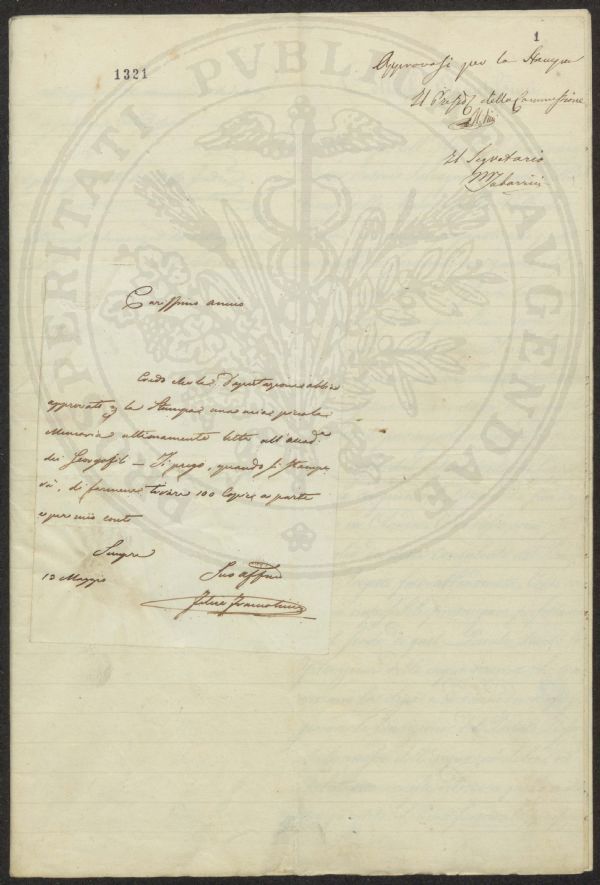 1
1321
Approvasi per la Stampa
Il Presid. della Commissione
Il Segretario
M Tabarrini
PROSPERITATI PVBLICAE AVGENDAE
Carissimo amico
Credo che la Deputazione abbia
approvato p la Stampa una mia piccola
Memoria ultimamente letta all'Accad.a
dei Georgofili — Ti prego, quando si stampe
rà, di farmene tirare 100 Copie a parte
e per mio conto
Sempre
13 Maggio
Tuo affmo
Felice Francolini